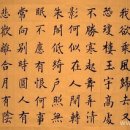 我欲乘風歸去又
恐瓊樓玉宇高處
不勝寒起舞弄清
影何似在人間轉
朱閣低綺戶照無
眠不應有恨何事
長向別時圓人有
悲歡離合月有陰